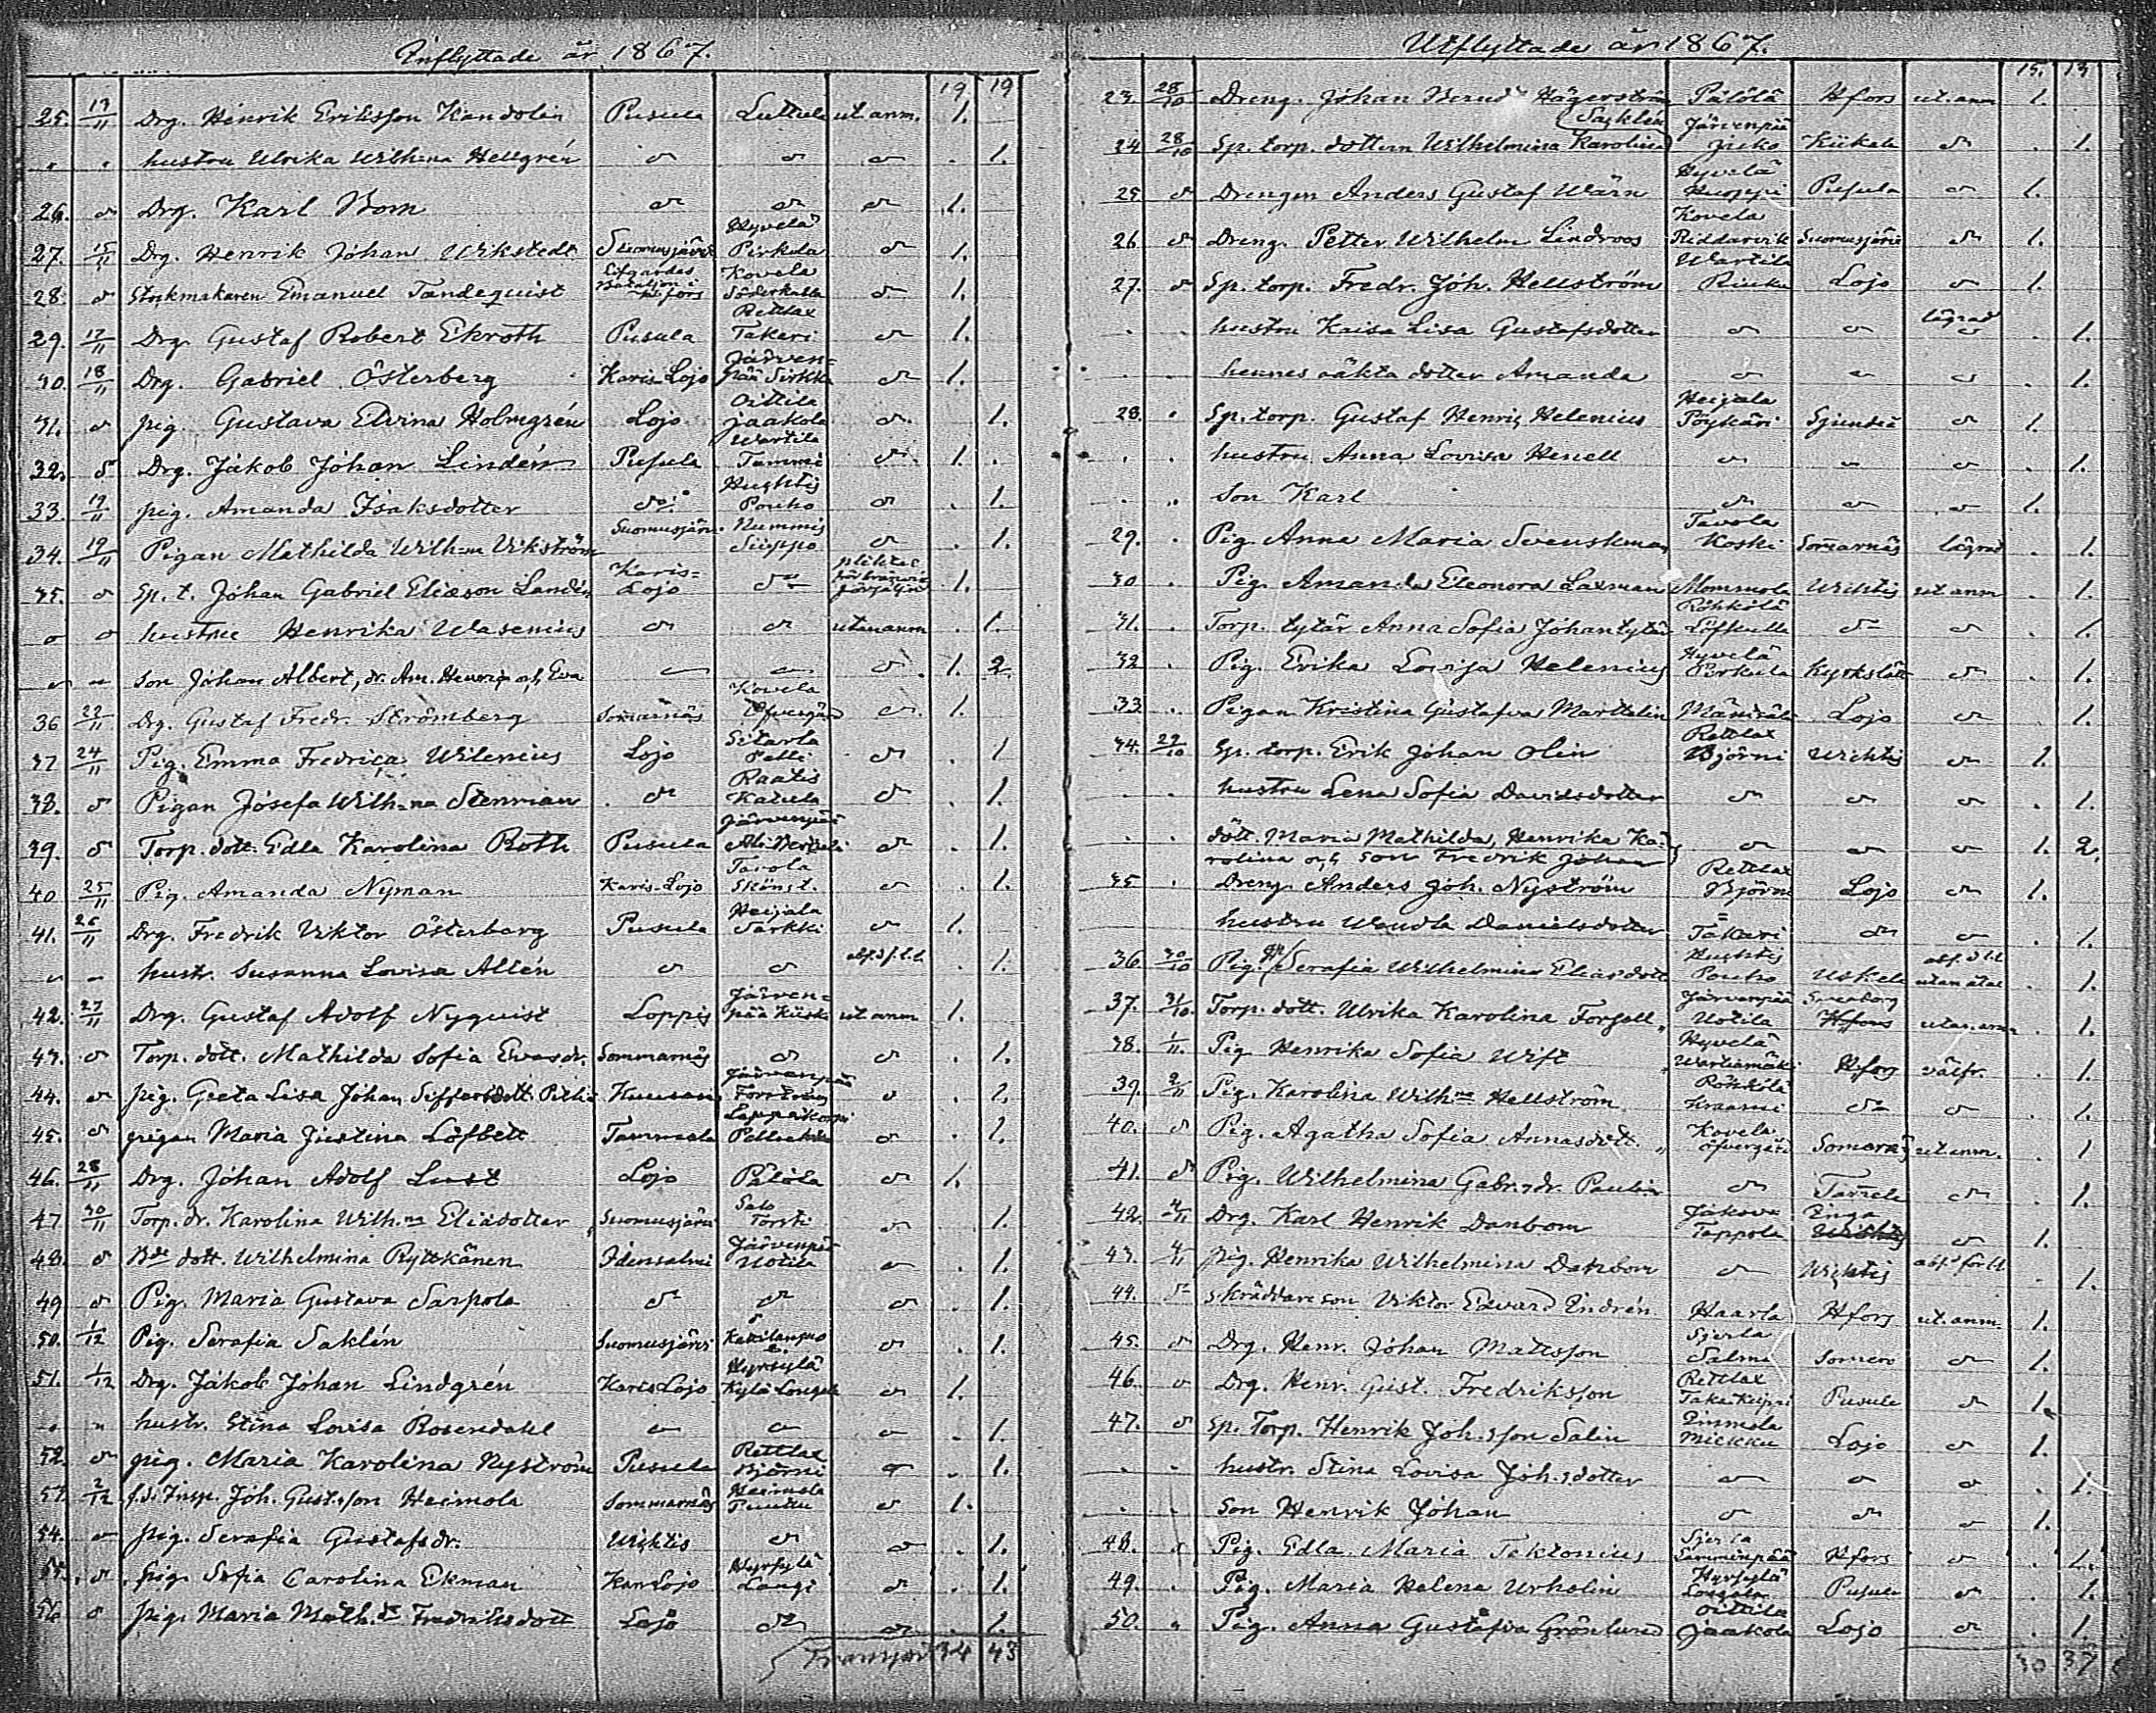 Inflyttade år 1867.
19 19
25. 13/11 Drg. Henrik Eriksson Kandolin Pusula Luttula ut.anm. 1.
" " hustru Ulrika Wilh=na Hellgrén d:o d:o d:o . 1.
26. d:o Drg. Karl Bom d:o d:o d:o 1.
27. 15/11 Drg. Henrik Johan Wikstedt Suomusjärvi Hyvelä Pirkula d:o 1.
28. d:o Stockmakaren Emanuel Tandequist Lifgardes Bataljon i H:fors Kovela Söderkulla d:o 1.
29. 17/11 Drg. Gustaf Robert Ekroth Pusula Rettlax Takeri d:o 1.
30. 18/11 Drg. Gabriel Österberg Karis-Lojo Järven=pää Sirkka d:o 1.
31. d:o pig. Gustava Elvina Holmgrén Lojo Oittila Jaakola d:o 1.
32. d:o Drg. Jakob Johan Lindén Pusula Wartila Tammi d:o 1. .
33. 19/11 pig. Amanda Isaksdotter d:o Huhtis Poucho d:o . 1.
34. 19/11 Pigan Mathilda Wilh=na Vikström Suomusjärvi Nummis Siippo d:o . 1.
35. d:o Sp. t. Johan Gabriel Eliæson Landén Karis=Lojo d:o 1.
d:o d:o hustru Henrika Wasenius d:o d:o utan anm . 1.
" " son Johan Albert, dr. Am. Henrica och Eva d:o d:o d:o 1. 2.
36 22/11 Drg. Gustaf Fredr. Strömberg Somarnäs Kovela Öfvergård d:o 1.
37 24/11 Pig. Emma Fredrica Wilenius Lojo Sitarla Pelli d:o . 1
38. d:o Pigan Josefa Wilh=na Stenman d:o Raatis Katula d:o . 1.
39. d:o Torp. dott. Edla Karolina Roth Pusula Järvenpää d:o . 1.
40 25/11 Pig. Amanda Nyman Karis-Lojo Tavola Skönst. d:o . 1.
41. 26/11 Drg. Fredrik Viktor Österberg Pusula Heijala Sarkki d:o 1.
" " hustr. Susanna Lovisa Allén d:o d:o . 1.
42. 27/11 Drg. Gustaf Adolf Nyquist Loppis Järven=pää Kiiski ut anm 1.
43. d:o Torp. dott. Mathilda Sofia Evasdr. Sommarnäs d:o d:o . 1.
44. d:o pig. Greta Lisa Johan Siffersdott. Järvenpää d:o . 1.
45. d:o pigan Maria Justina Löfbett Tammela Leppäkorpi d:o . 1.
46. 28/11 Drg. Johan Adolf Lust Lojo Pälölä d:o 1.
47 30/11 Torp. dr. Karolina Wilh.na Eliædotter Suomusjärvi Salo Torsti d:o . 1.
48. d:o B:de dott. Wilhelmina Ryttkänen Idensalmi Järvenpää Uotila d:o . 1.
49 d:o Pig. Maria Gustava Sarpola d:o d:o d:o . 1.
50. 1/12 Pig. Serafia Saklén Suomusjärvi d:o . 1.
51. 1/12 Drg. Jakob Johan Lindgrén Karis Lojo Hyrsylä Kylä Longi d:o 1.
" " hustr. Stina Lovisa Rosendahl d:o d:o d:o . 1.
52. d:o pig. Maria Karolina Nyström Pusula Rettlax Björni d:o . 1.
53 2/12 f.d. Insp. Joh. Gustsson Heimola Sommarnäs Heimola d:o 1.
54. d:o pig. Serafia Gustafsdr. Wichtis d:o d:o . 1.
55. d:o pig. Sofia Carolina Ekman Kar.Lojo Hyrsylä Longi d:o . 1.
56 d:o pig. Maria Math. Fredriksdott Lojo d:o d:o . 1.
Transport 34 43
Utflyttade år 1867.
15. 13
23. 28/10 Dreng. Johan Hägerström Pälölä Hfors ut.anm 1.
24 28/10 Sp. torp. dottern Wilhelmina Karolina Saklén Järvenpää Juko Kiikala d:o . 1.
25 d:o Drengen Anders Gustaf Wärn Hyvelä Huoppi Pusula d:o 1.
26 d:o Dreng. Petter Wilhelm Lindroos Kovela Riddarvik Suomusjärvi d:o 1.
27. d:o Sp. torp. Fredr. Joh. Hellström Wartila Lojo d:o 1.
. . hustru Kaisa Lisa Gustafsdotter d:o d:o lägrad . 1.
hennes oäkta dotter Amanda d:o d:o d:o . 1.
28. . Sp. torp. Gustaf Henric Helenius Heijala Pöykäri Sjundeå d:o 1.
. . hustru Anna Lovisa Henell d:o d:o d:o . 1.
. . son Karl d:o d:o d:o 1.
29. . Pig. Anna Maria Svenskman Tavola Koski Somarnäs lägrad . 1.
30 . Pig. Amanda Eleonora Laxman Mommola Wichtis ut.anm . 1.
31. . Torp. tytär Anna Sofia Johantytär Röhkölä Löfkulla d:o d:o . 1.
32 . Pig. Erika Lovisa Helenius Hyvelä Pirkula Kyrkslätt d:o . 1.
33 . Pigan Kristina Gustafva Marttelin Lojo d:o . 1.
34. 29/10 Sp. torp. Erik Johan Olin Rettlax Björni Wichtis d:o 1.
. . hustru Lena Sofia Davidsdotter d:o d:o d:o . 1.
. . dött. Maria Mathilda, Henrika Ka=
rolina och son Fredrik Johan d:o d:o d:o 1. 2.
35 . Dreng. Anders Joh. Nyström Rettlax Björni Lojo d:o 1.
hustru Wendla Danielsdotter Takari d:o d:o . 1.
36 30/10 Pig. Serafia Wilhelmina Eliasdott Huhtis Poucho Uskela . 1.
37. 31/10. Torp. dott. Ulrika Karolina Forsell Järvenpää Uotila Sveaborg Hfors utan.anm . 1.
38. 1/11. Pig Henrika Sofia Wist Hyvelä Wartiamäki Hfors välfr. . 1.
39. 2/11 Pig. Karolina Wilh:na Hellström Röhkölä d:o d:o . 1.
40. d:o Pig. Agatha Sofia Annasdott. Kovela Öfvergård Somernäs ut anm. . 1
41. d:o Pig. Wilhelmina Gabr.dr. Paulin d:o Tamela d:o . 1.
42. 4/11 Drg. Karl Henrik Danbom Jakova Tappola Inga Wichtis d:o 1.
43. 4/11 pig. Henrika Wilhelmina Danbom d:o Wichtis . 1.
44. d:o skräddareson Viktor Edvard Endrén Haarla Hfors ut.anm 1.
45. d:o Drg. Henr. Johan Mattsson Sjerla Salmi Somero d:o 1.
46 d:o Drg. Henr. Gust. Fredriksson Rettlax Pusula d:o 1.
47. d:o Sp. Torp. Henrik Joh.sson Salin Immola Mickku Lojo d:o 1.
. . hustr. Stina Lovisa Joh.sdotter d:o d:o d:o . 1.
. . son Henrik Johan d:o d:o d:o 1.
48. . Pig. Edla Maria Tektonius Sjerla Hfors d:o . 1.
49. . Pig. Maria Helena Urholin Hyrsylä Pusula d:o . 1.
50. " Pig. Anna Gustafva Grönlund Oittila Jaakola Lojo d:o . 1.
30 37